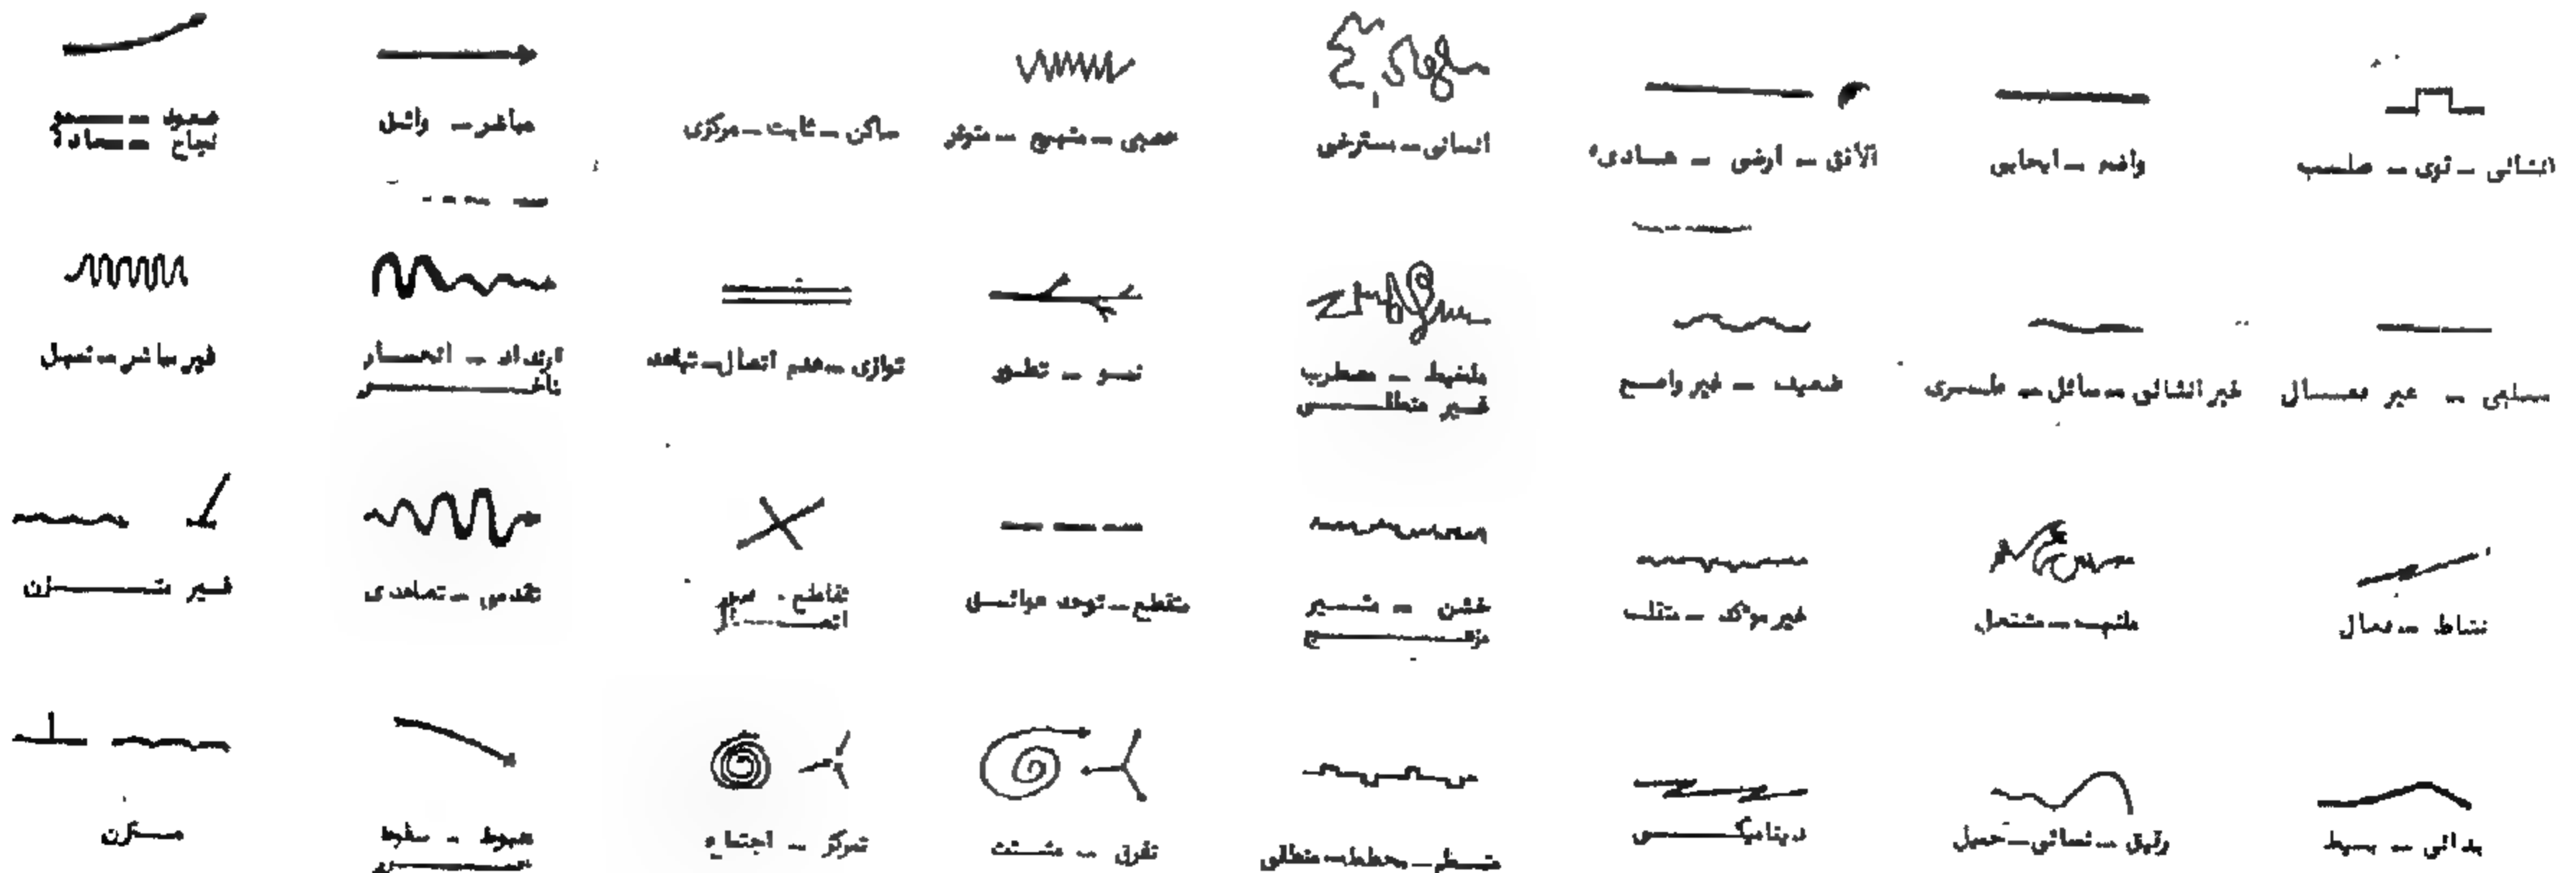 انشائى - قوى - صلب
واضح - ايجابى
الأفق - ارضى - هادىء
انسابى - مسترخى
عصبى - متهيج - متوتر
ساكن - ثابت - مركزى
مباشر - واثق
صعود - سمو
نجاح - سعادة
سلبى - غير فعال
غير انشائى - سائل - طرى
ضعيف - غير واضح
مضطرب
غير منطقى
نمو - تطور
توازى - عدم اتصال - تباعد
ارتداد - انحسار
تأخر
غير مباشر
نشاط - فعال
ملتهب - مشتعل
غير مؤكد - متقلب
خشن - مثير
مزعج
متقطع - توجد عوائق
تقاطع
اتصال
تقدمى - تصاعدى
غير متزن
بدائى - بسيط
رقيق - نسائى - جميل
ديناميكى
مخطط - منطقى
تفرق - مشتت
تمركز - اجتماع
هبوط - سقوط
متزن